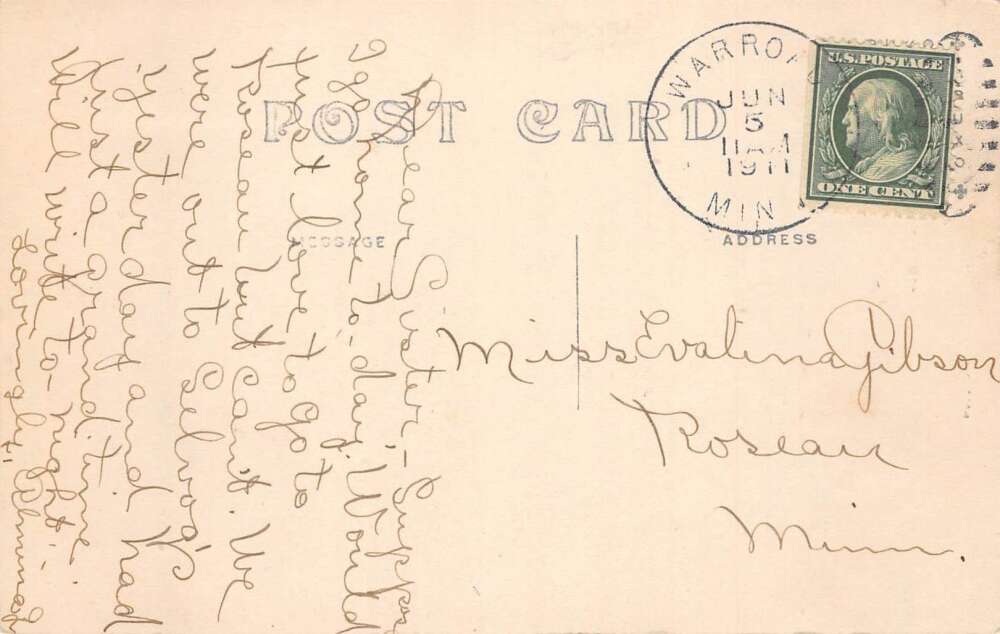 POST CARD
WARROAD
JUN
5
11 AM
1911
MINN
U.S. POSTAGE
ONE CENT
MESSAGE
ADDRESS
Dear Sister – Suppose
Igo home to-day. Would
just love to go to
Roseau but can't. We
were out to Selvog's
yesterday and had
just a grand time.
Will write to-night.
Lovingly,
Miss Evalena Gibson
Roseau
Minn.